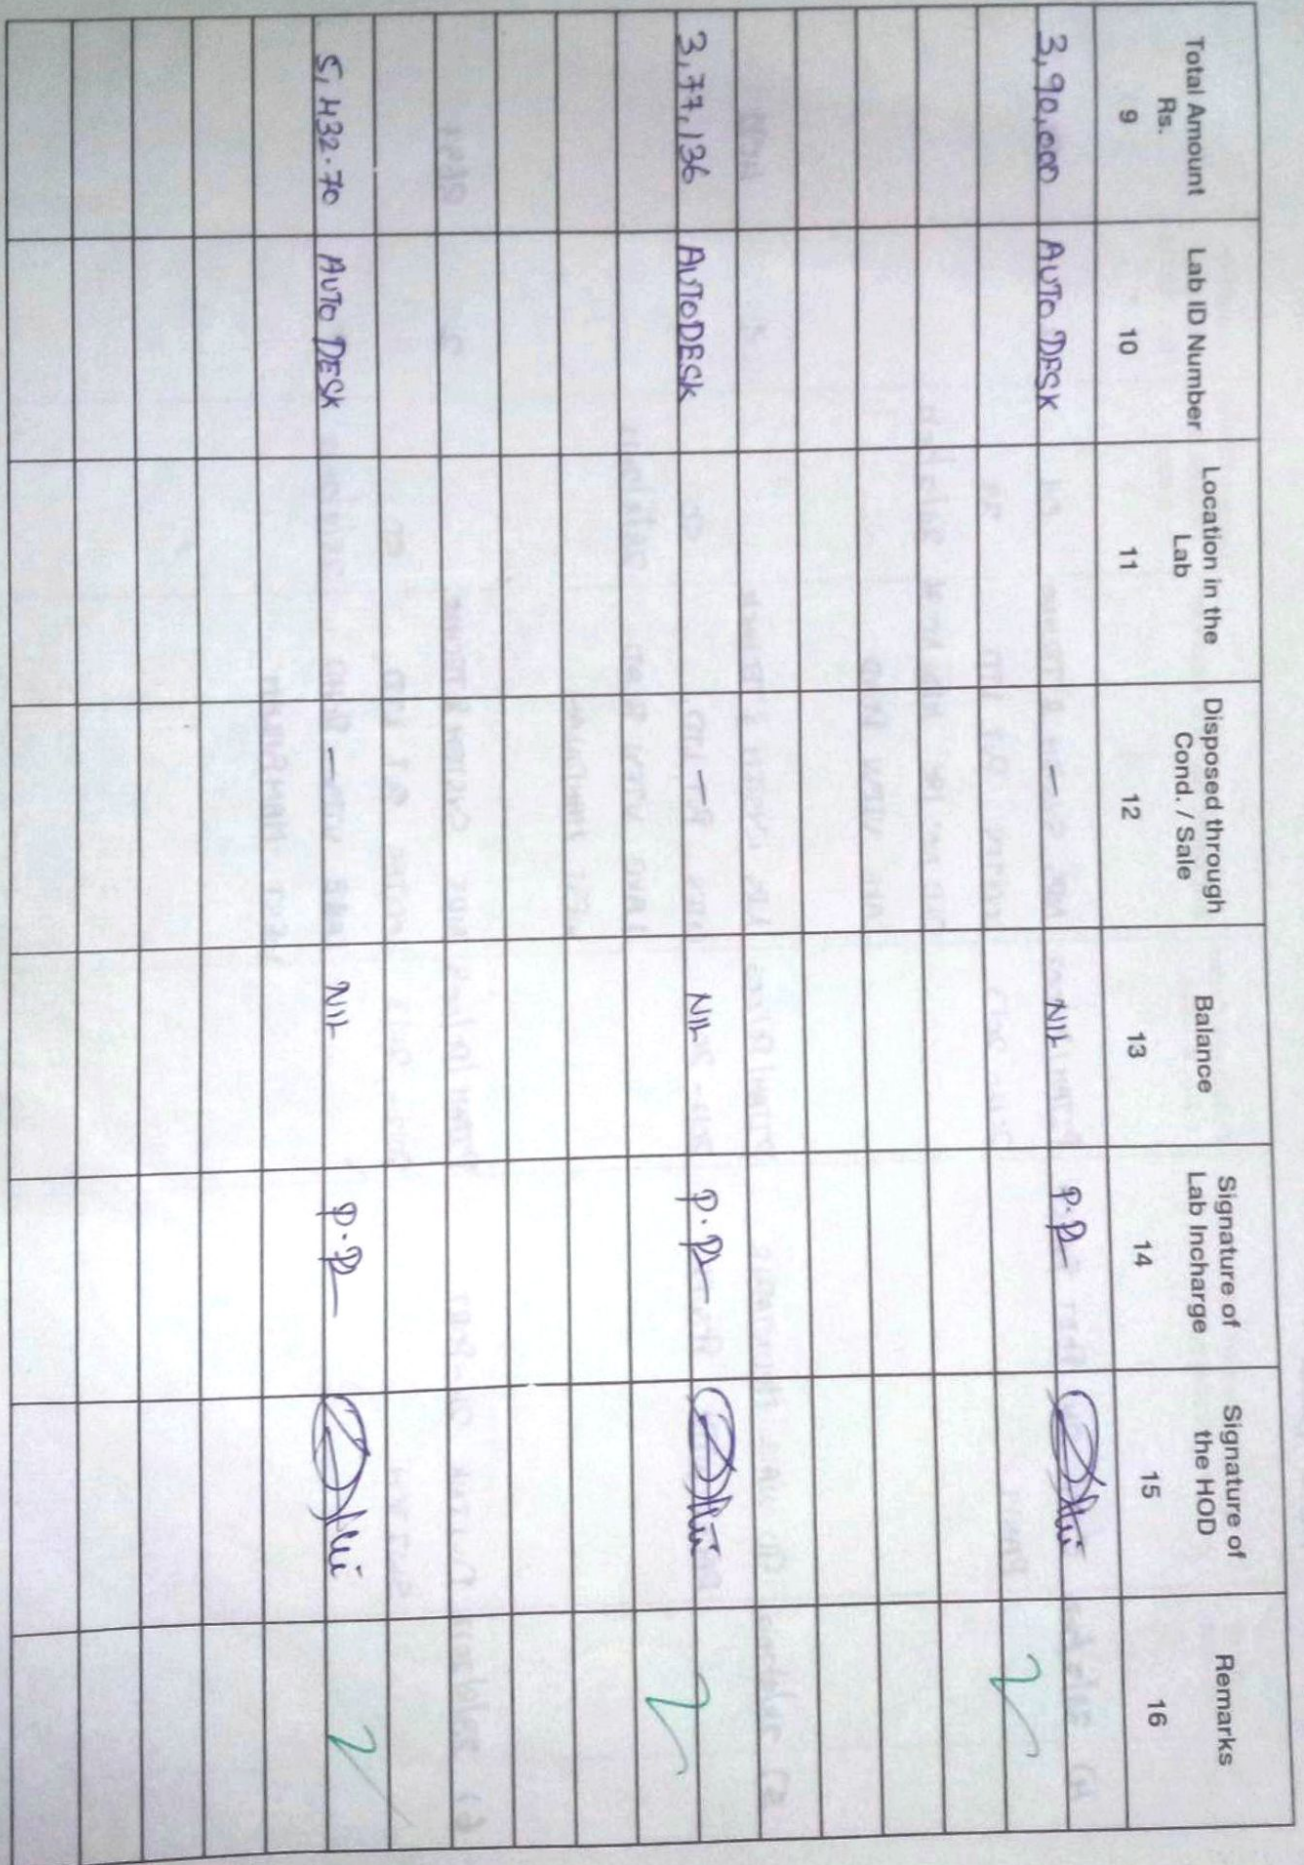 Total Amount Rs. Lab ID Number Location in the Lab Disposed through Cond. / Sale Balance Signature of Lab Incharge Signature of the HOD Remarks
9 10 11 12 13 14 15 16
3,90,000 AUTO DESK — NIL P.P
3,77,136 AUTODESK — NIL P.P
5,432.70 AUTO DESK — NIL P.P